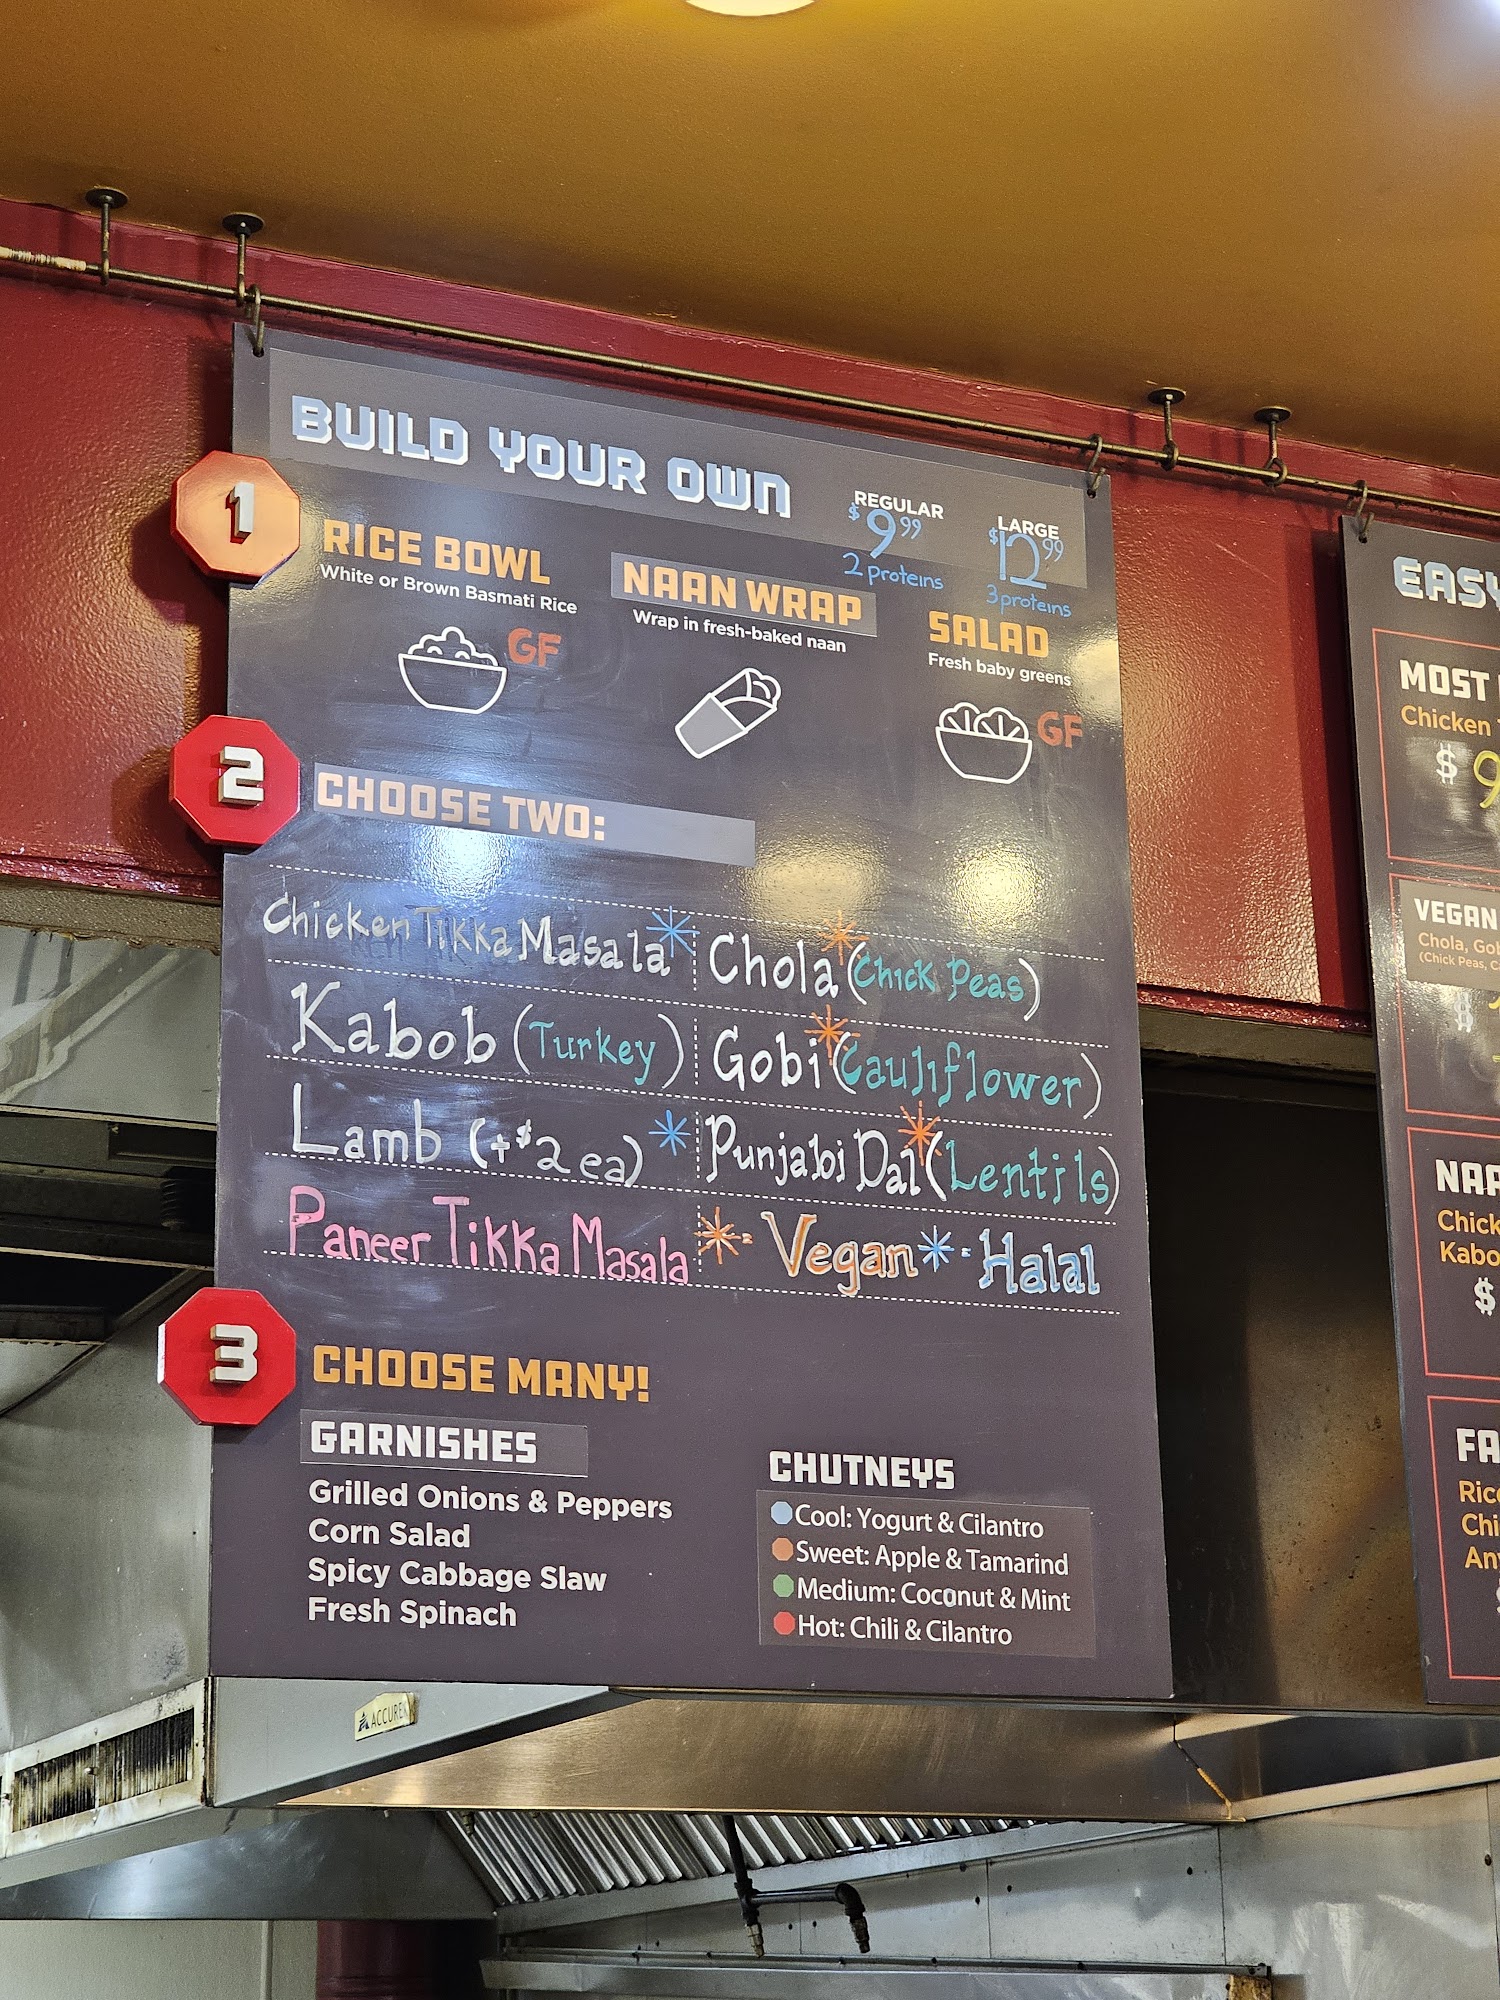 BUILD YOUR OWN
REGULAR
$9.99
2 proteins
LARGE
$12.99
3 proteins
1
RICE BOWL
White or Brown Basmati Rice
GF
NAAN WRAP
Wrap in fresh-baked naan
SALAD
Fresh baby greens
GF
2
CHOOSE TWO:
Chicken Tikka Masala*
Chola* (Chick Peas)
Kabob (Turkey)
Gobi* (Cauliflower)
Lamb (+$2 ea) *
Punjabi Dal* (Lentils)
Paneer Tikka Masala
* = Vegan * = Halal
3
CHOOSE MANY!
GARNISHES
Grilled Onions & Peppers
Corn Salad
Spicy Cabbage Slaw
Fresh Spinach
CHUTNEYS
Cool: Yogurt & Cilantro
Sweet: Apple & Tamarind
Medium: Coconut & Mint
Hot: Chili & Cilantro
EASY
MOST
Chicken
$9
VEGAN
Chola,
(Chick Peas,
$
$
FA